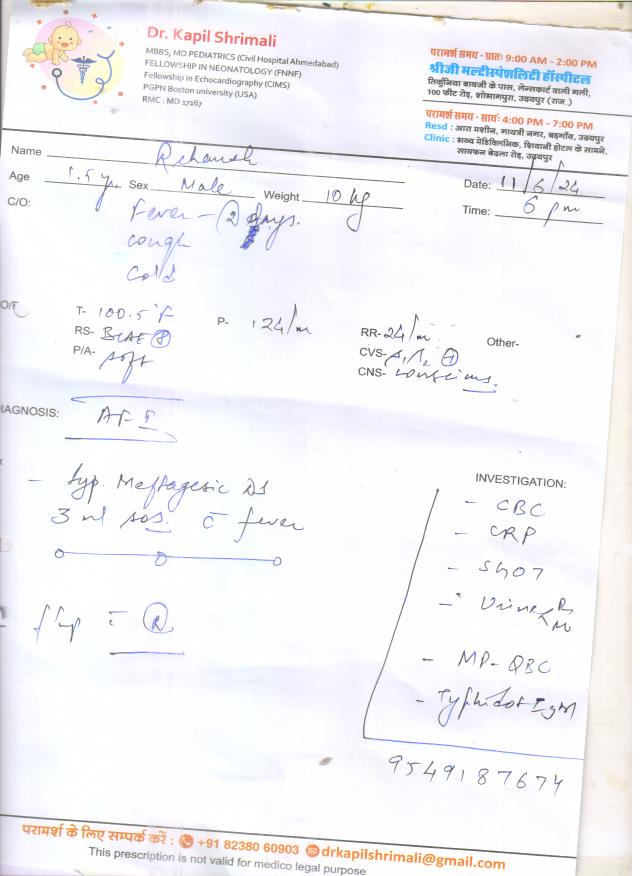 Dr. Kapil Shrimali
MBBS, MD PEDIATRICS (Civil Hospital Ahmedabad)
FELLOWSHIP IN NEONATOLOGY (FNNF)
Fellowship in Echocardiography (CIMS)
PGPN Boston university (USA)
RMC : MD 17167
परामर्श समय - प्रातः 9:00 AM - 2:00 PM
श्रीजी मल्टीस्पेशलिटी हॉस्पीटल
तिकुनिया बावजी के पास, लेन्सकार्ट वाली गली,
100 फीट रोड़, शोभागपुरा, उदयपुर (राज.)
परामर्श समय - सायं: 4:00 PM - 7:00 PM
Resd : आरा मशीन, गायत्री नगर, बड़गाँव, उदयपुर
Clinic : भव्य मेडिक्लिनिक, शिवानी होटल के सामने,
सायफन बेदला रोड़, उदयपुर
Name Rehansh
Age 1.5 yr Sex Male Weight 10 kg
Date: 11/6/24
Time: 6 pm
C/O: Fever - 2 days.
cough
cold
O/F
T- 100.5°F P- 124/m RR- 24/m Other-
RS- BLAE + CVS- +
P/A- soft CNS- conscious.
IAGNOSIS: AFI
- Syp. Meftagesic DS
3 ml sos. c̄ fever
f/up c̄ R
INVESTIGATION:
- CBC
- CRP
- SGOT
- Urine R/M
- MP-QBC
- Typhidot IgM
9549187674
परामर्श के लिए सम्पर्क करें : +91 82380 60903 drkapilshrimali@gmail.com
This prescription is not valid for medico legal purpose